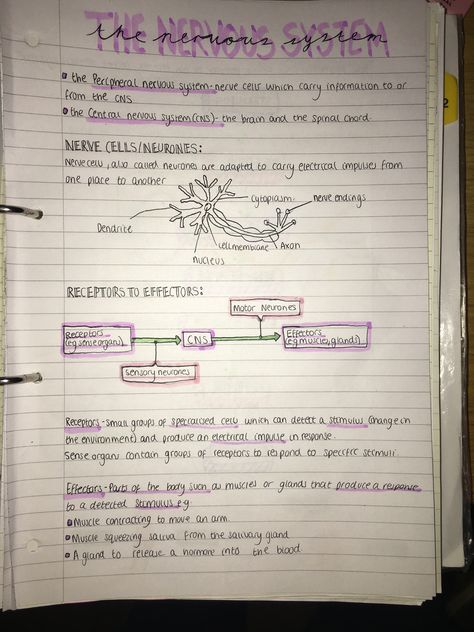 THE NERVOUS SYSTEM
the nervous system
the Peripheral nervous system- nerve cells which carry information to or
from the CNS
the Central nervous system (CNS)- the brain and the spinal chord.
2
NERVE CELLS/NEURONES:
Nerve cells, also called neurones are adapted to carry electrical impulses from
one place to another
Cytoplasm
nerve endings
Dendrite
cell membrane
Axon
nucleus
RECEPTORS TO EFFECTORS:
Motor Neurones
Receptors
(eg sense organs)
CNS
Effectors
(eg muscles, glands)
Sensory neurones
Receptors - small groups of specialised cells which can detect a stimulus (change in
the environment) and produce an electrical impulse in response.
Sense organs contain groups of receptors to respond to specific stimuli.
Effectors- Parts of the body such as muscles or glands that produce a response
to a detected stimulus eg.
Muscle contracting to move an arm.
Muscle squeezing saliva from the salivary gland
A gland to release a hormone into the blood